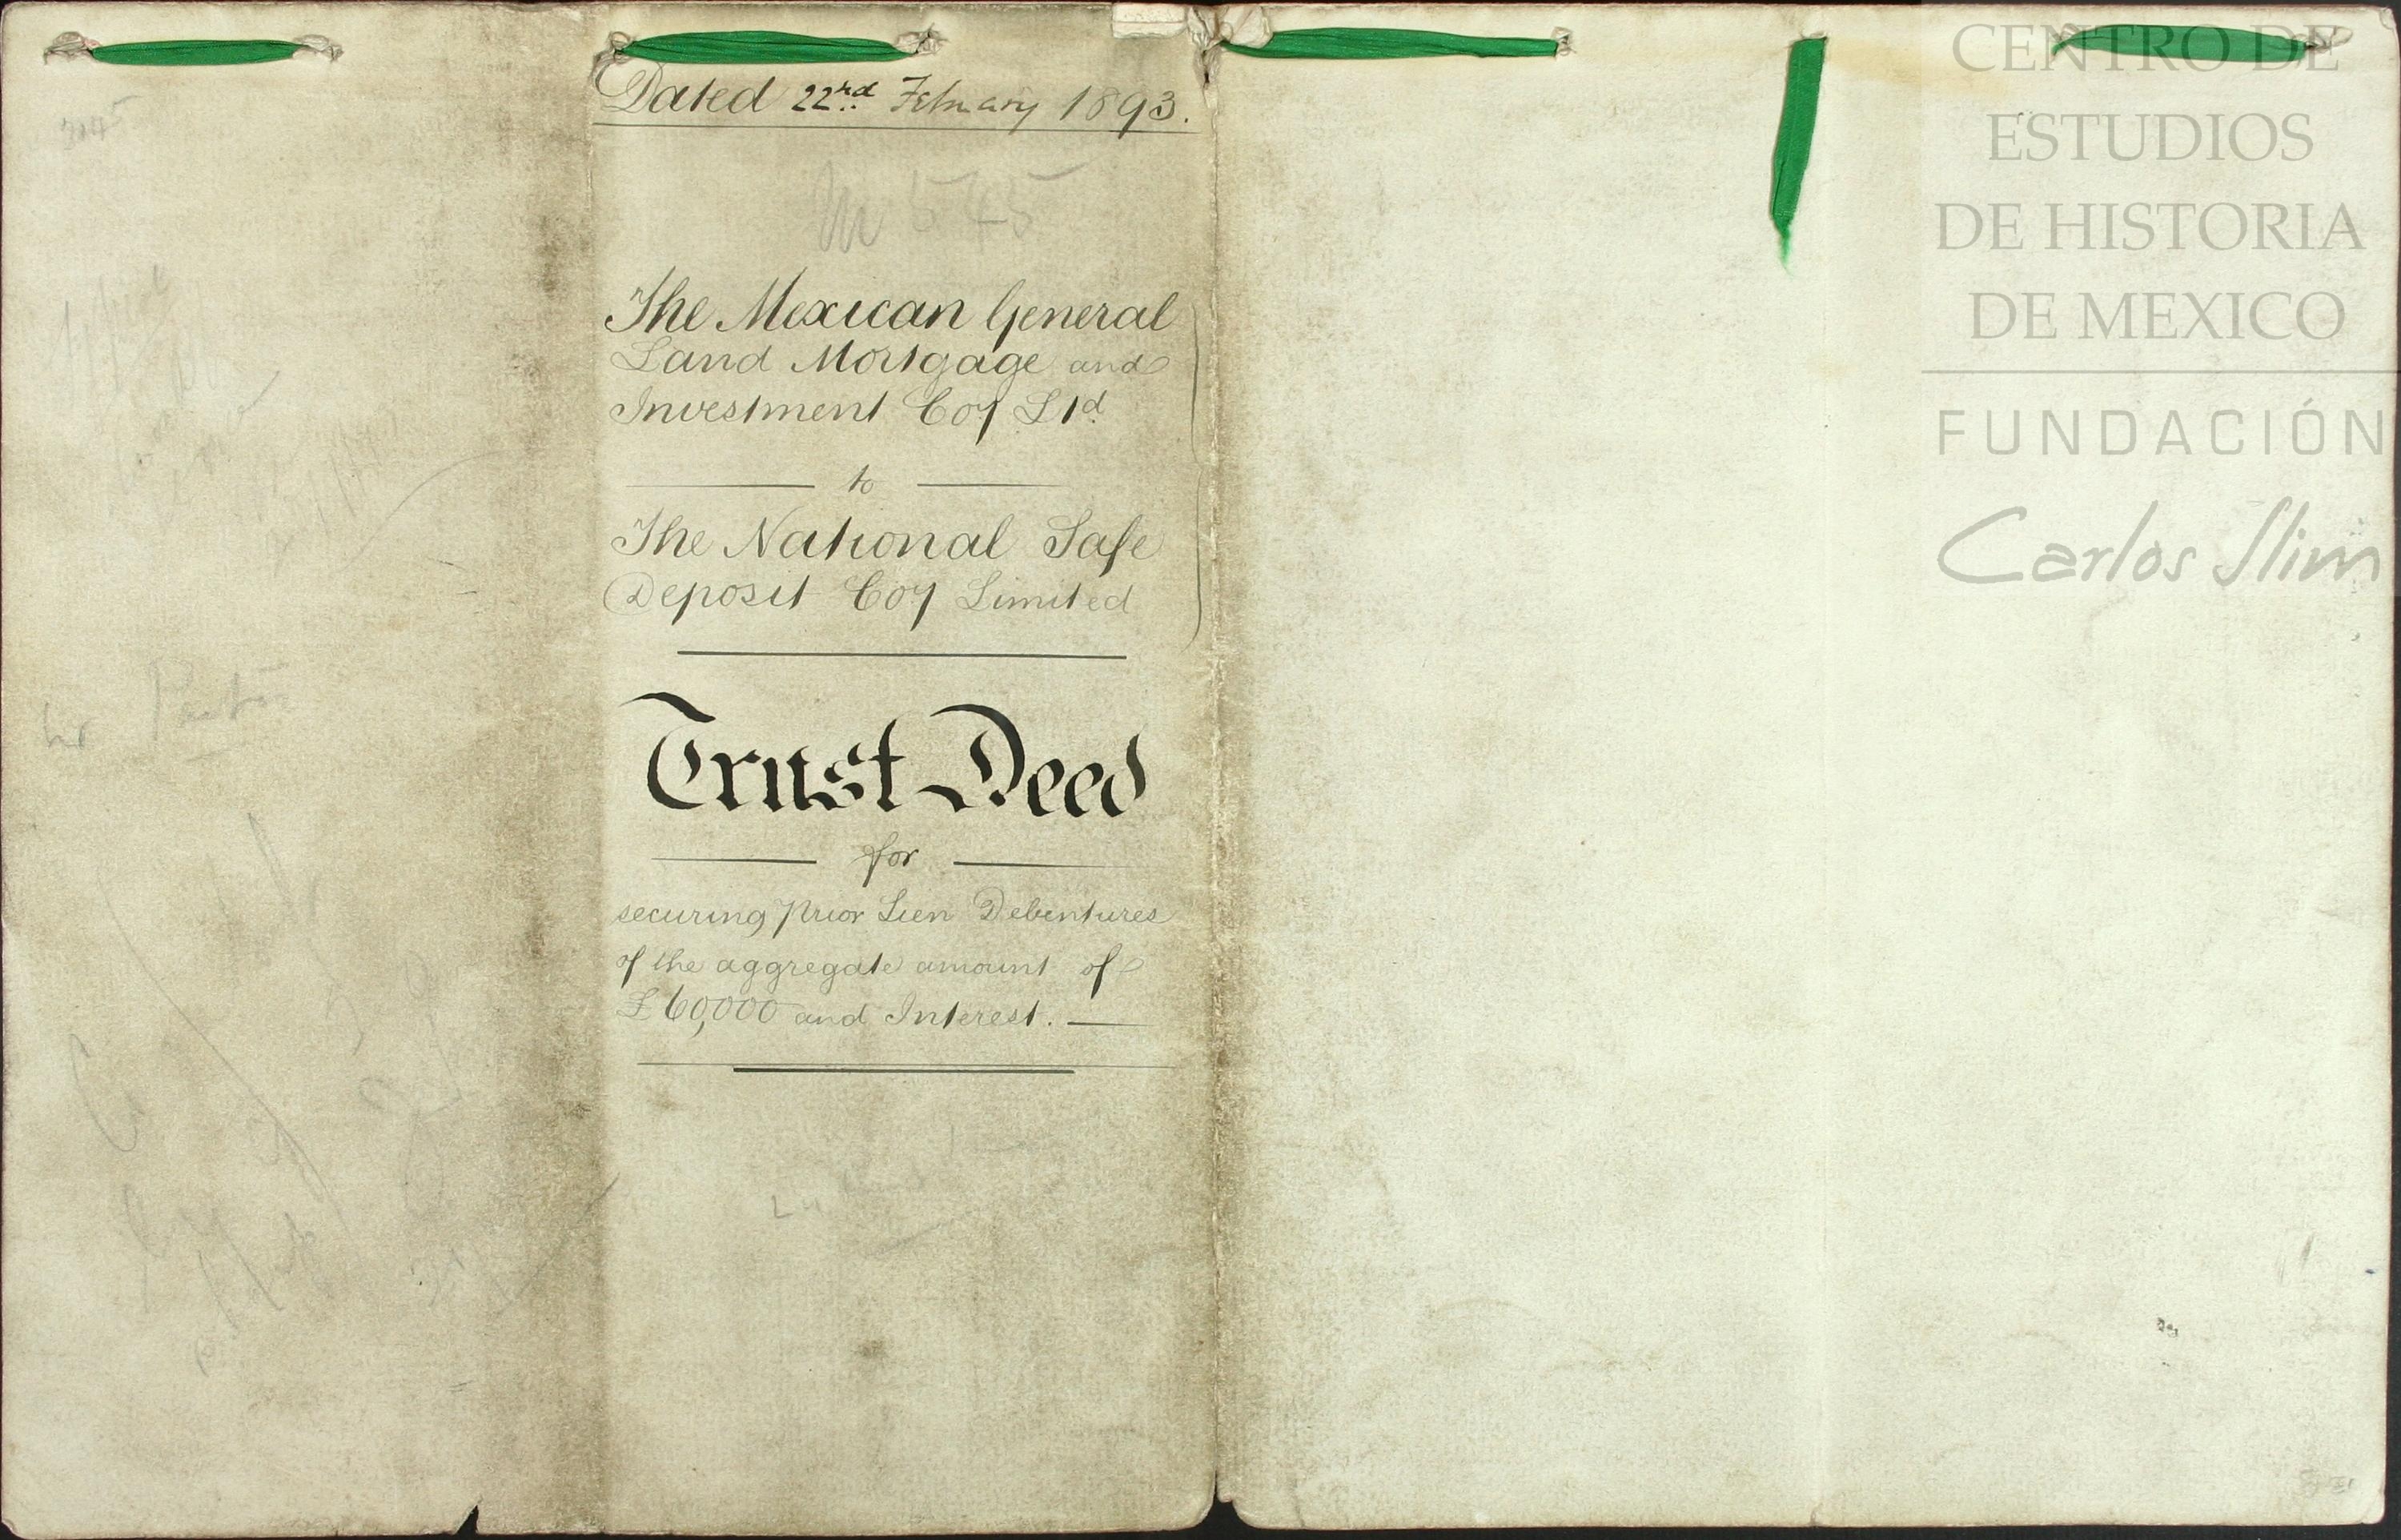 Dated 22nd February 1893.
The Mexican General
Land Mortgage and
Investment Coy Ltd
to
The National Safe
Deposit Coy Limited
Trust Deed
for
securing Prior Lien Debentures
of the aggregate amount of
£60,000 and Interest.
CENTRO DE
ESTUDIOS
DE HISTORIA
DE MEXICO
FUNDACIÓN
Carlos Slim